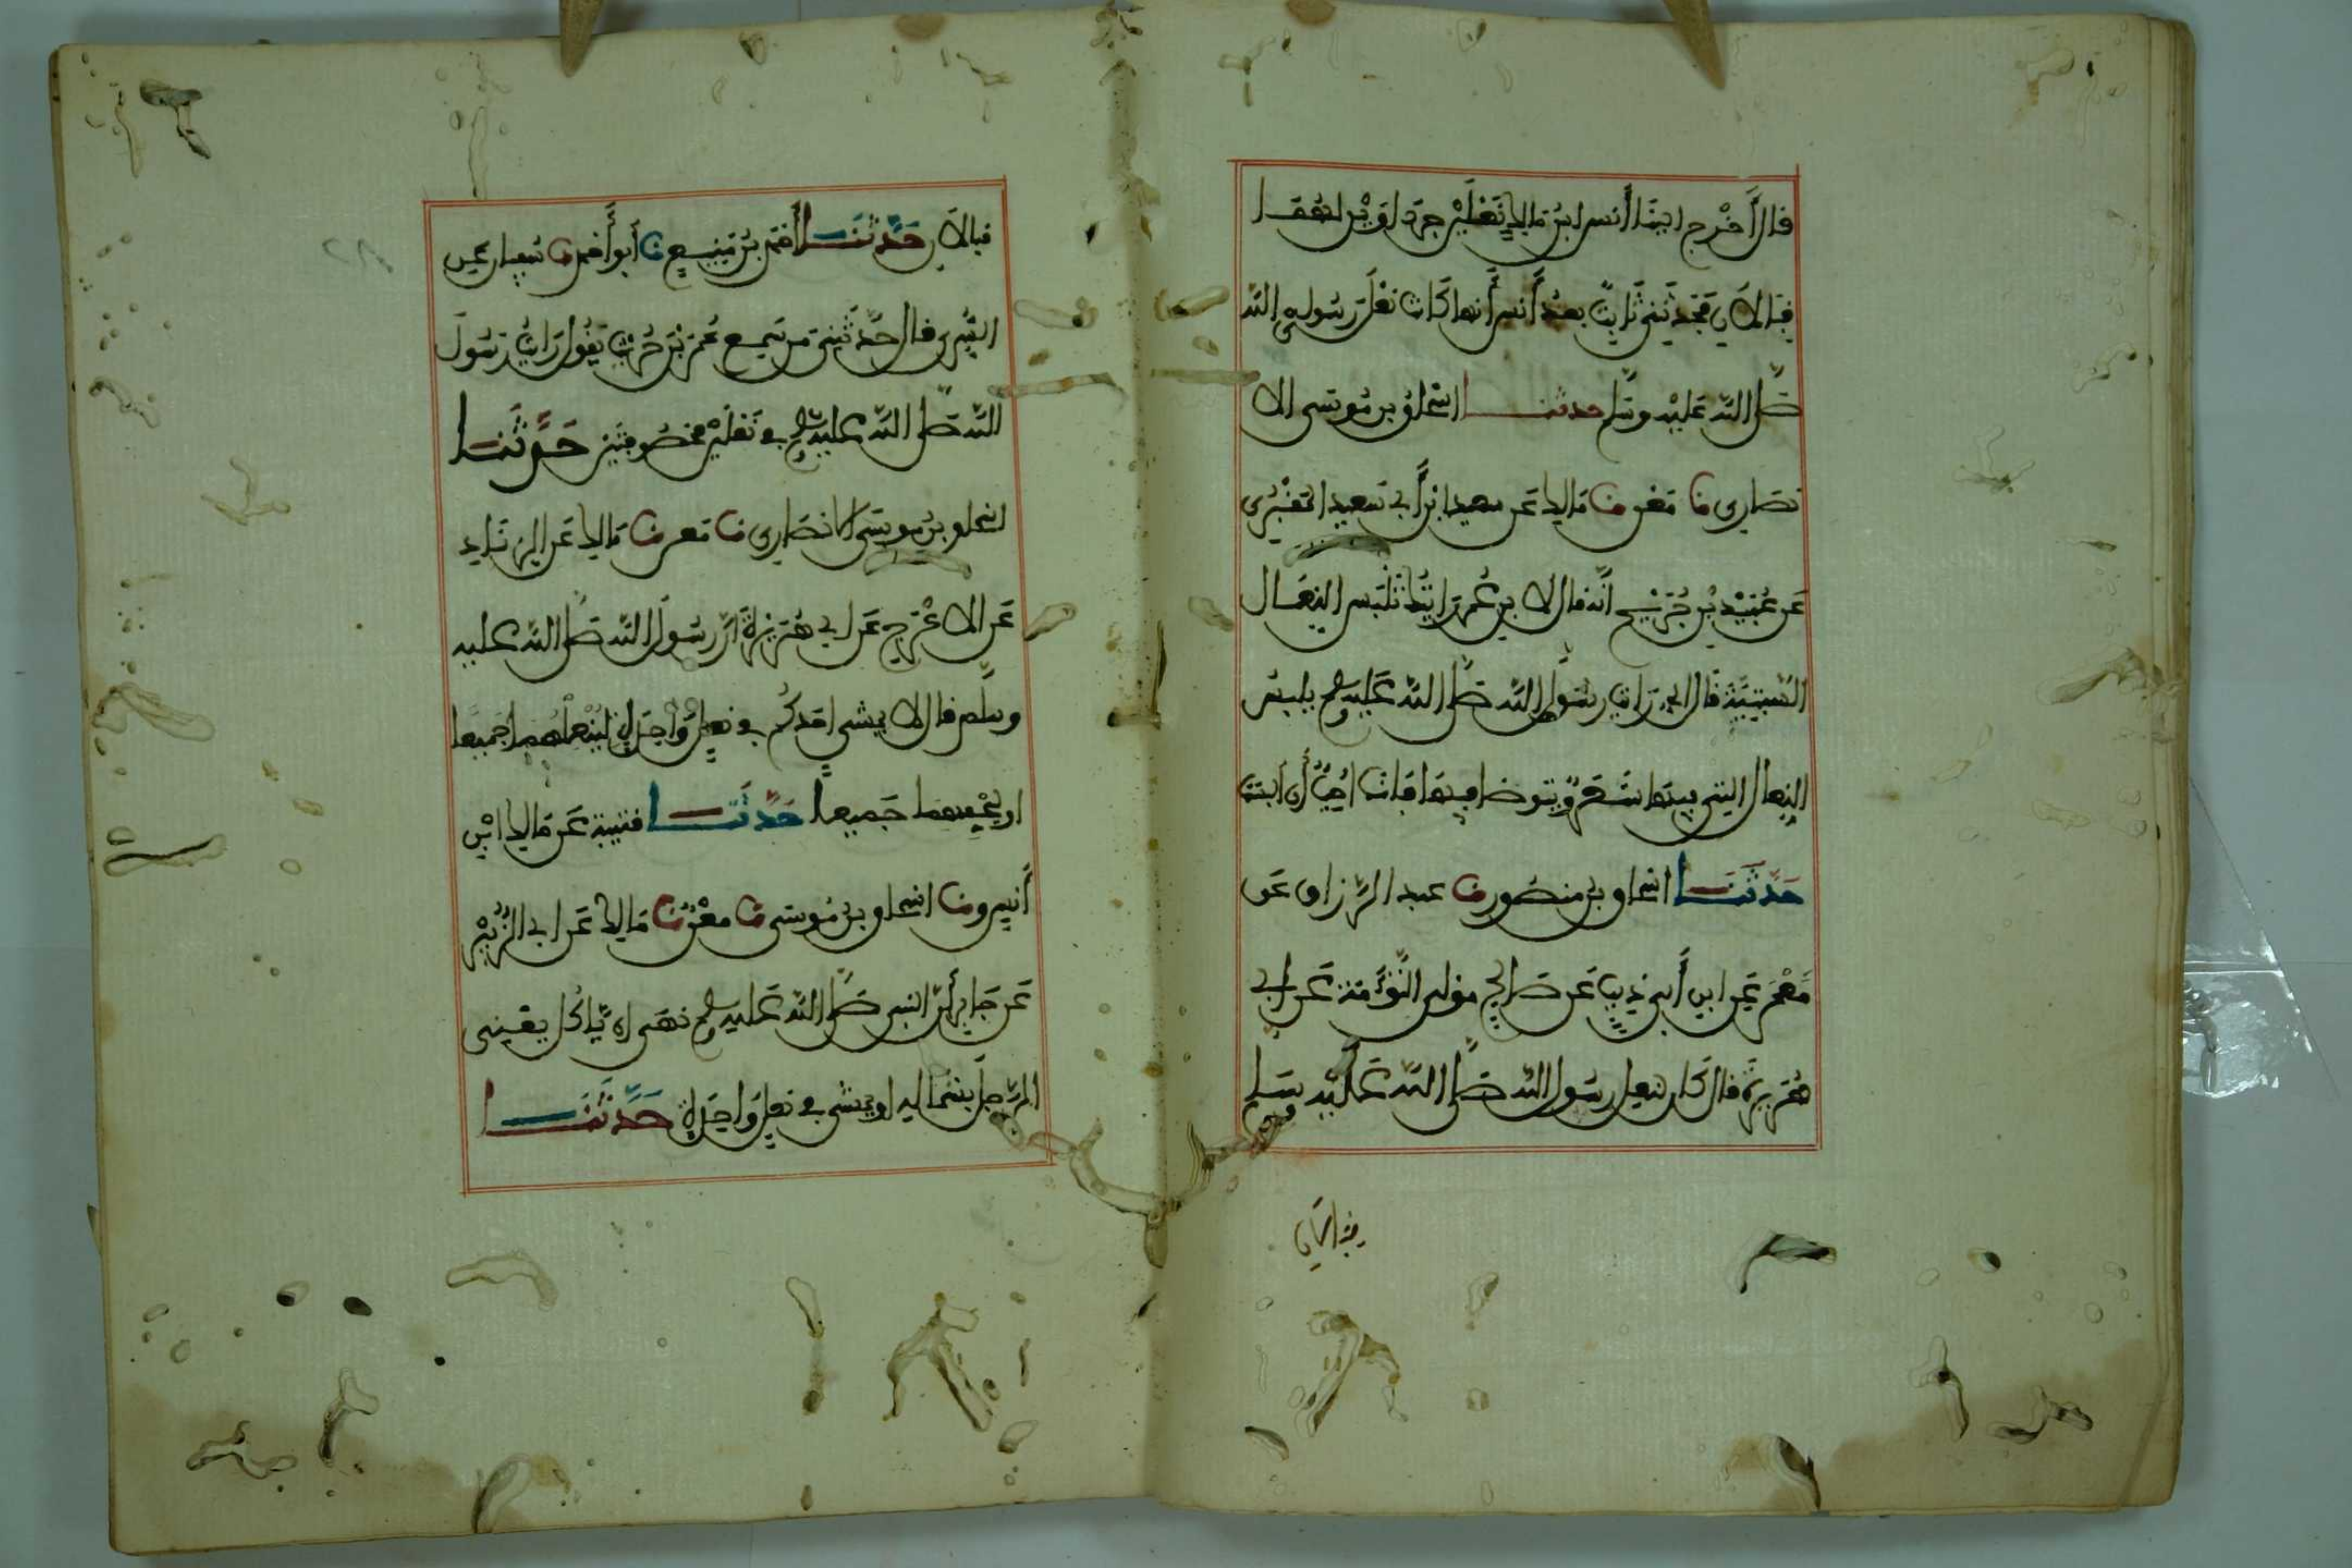 قال أَخْرج الينا أنس ابن مالك نَعْلَيْن جرداوَيْن لهُمَا
قِبَالاَنِ فحَدثَنِي ثَابِتٌ بعدُ أنس أنهما كَانَتا نَعْلَي رسُول الله
صَلى الله عَليْه وسَلم حدثنا اسْحاقُ بن مُوسَى الا
نصَاري نا مَعْن نا مَالك عَن سعيد ابن أبي سَعيد المَقْبُري
عَن عُبَيْد بْن جُرَيْج أنه قال لابن عُمر رَايتُك تَلْبَس النِعَال
السِّبْتِيَّة قَال اني رَايت رسُول الله صَلى الله عَليه وسلم يلبس
النِعال التي ليس فيها شَعَرٌ ويتوضا فيهَا فَانا احِبُّ أن ألبسَها
حَدَّثنَا اسْحاق بن منصُور نا عبد الرزاق عَن
مَعْمَر عَن ابن أبي ذيب عَن صَالح مولى التَّوْأَمَة عَن أبي
هُرَيرة قال كَان لنعل رسُول الله صَلى الله عَلَيْه وسَلم
قِبالان حَدَّثَنَا أحْمَد بن مَنِيع نا أبو أحْمد نا سُفيان عَن
السُّدي قال حَدَّثَنِي مَن سَمِع عُمَرْو بْن حُرَيْث يَقُول رَايْتُ رَسُول
الله صَلى الله عليه وسلم يصلي في نَعْلَيْن مخصُوفَتَيْن حَدَّثَنَا
اسحاق بن مُوسَى الانصَاري نا مَعن نا مَالك عَن ابي الزناد
عَن الاعْرَج عَن ابي هُرَيْرَة ان رسُول الله صَلى الله عليه
وسلم قال لا يمشي احَدكُم في نعلٍ وَاحِدَةٍ لِيُنْعِلْهُمَا جَميعًا
او ليُحْفهما جَميعا حَدَّثَنَا قتيبة عَن مَالك ابْن
أنس ونا اسحاق بن مُوسَى نا مَعْن نا مَالك عَن ابي الزُّبَيْر
عَن جَابر أن النبي صَلى الله عَليه وسلم نهَى ان يَّاكُل يعْني
الرَّجل بشمَاله او يمشي في نعل وَاحِدَة حَدَّثَنَا